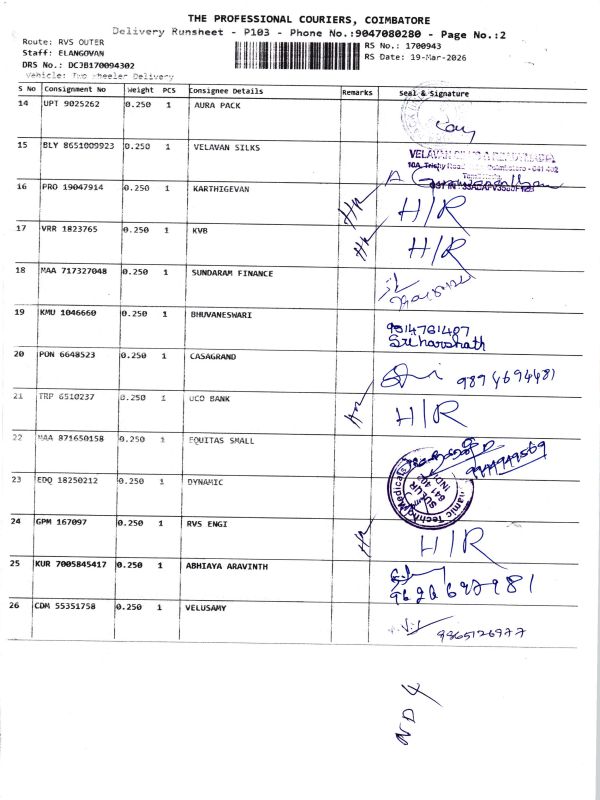 THE PROFESSIONAL COURIERS, COIMBATORE
Delivery Runsheet - P103 - Phone No.:9047080280 - Page No.:2
Route: RVS OUTER
RS No.: 1700943
Staff: ELANGOVAN
RS Date: 19-Mar-2026
DRS No.: DCJB170094302
Vehicle: Two Wheeler Delivery
S No Consignment No Weight PCS Consignee Details Remarks Seal & Signature
14 UPT 9025262 0.250 1 AURA PACK
15 BLY 8651009923 0.250 1 VELAVAN SILKS
10A, Trichy Road Coimbatore - 641 402
16 PRO 19047914 0.250 1 KARTHIGEVAN H/R
17 VRR 1823765 0.250 1 KVB H/R
18 MAA 717327048 0.250 1 SUNDARAM FINANCE
19 KMU 1046660 0.250 1 BHUVANESWARI
9514761407
Sriharshath
20 PON 6648523 0.250 1 CASAGRAND 9894694481
21 TRP 6510237 0.250 1 UCO BANK H/R
22 MAA 871650158 0.250 1 EQUITAS SMALL
23 EDQ 18250212 0.250 1 DYNAMIC
SULUR
641 402
24 GPM 167097 0.250 1 RVS ENGI H/R
25 KUR 7005845417 0.250 1 ABHIAYA ARAVINTH
26 CDM 55351758 0.250 1 VELUSAMY 9965126977
ND 4